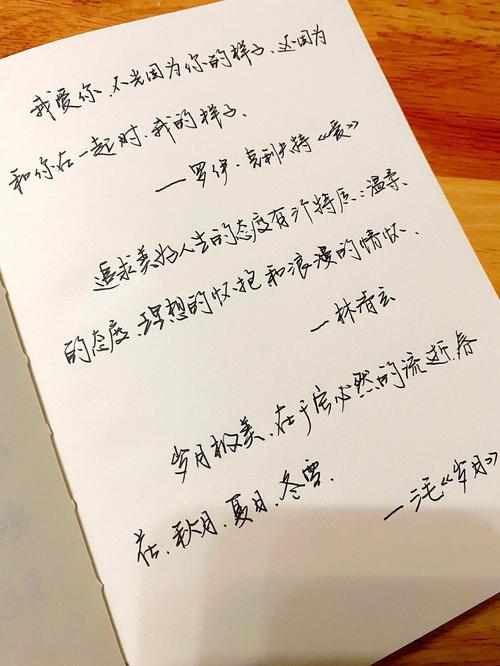 我爱你.不光因为你的样子.还因为
和你在一起时.我的样子.
—罗伊·克利夫特《爱》
追求美好人生的态度有个特质:温柔
的态度.理想的怀抱和浪漫的情怀.
—林清玄
岁月极美.在于它必然的流逝.春
花.秋月.夏日.冬雪.
—三毛《岁月》